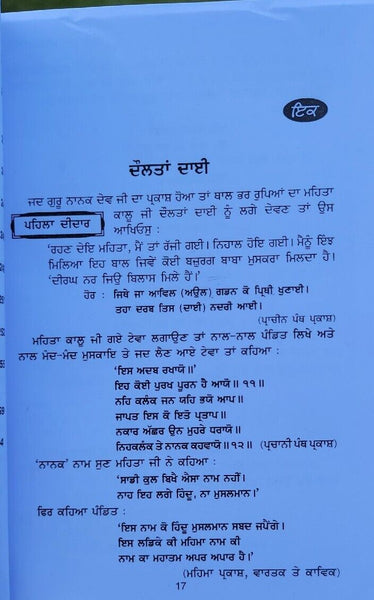 ਇਕ
ਦੌਲਤਾਂ ਦਾਈ
ਜਦ ਗੁਰੂ ਨਾਨਕ ਦੇਵ ਜੀ ਦਾ ਪ੍ਰਕਾਸ਼ ਹੋਆ ਤਾਂ ਬਾਲ ਭਰ ਰੁਪਿਆਂ ਦਾ ਮਹਿਤਾ
ਪਹਿਲਾ ਦੀਦਾਰ
ਕਾਲੂ ਜੀ ਦੌਲਤਾਂ ਦਾਈ ਨੂੰ ਲਗੇ ਦੇਵਣ ਤਾਂ ਉਸ
ਆਖਿਓਸੁ :
'ਰਹਣ ਦੇਇ ਮਹਿਤਾ, ਮੈਂ ਤਾਂ ਰੱਜੀ ਗਈ। ਨਿਹਾਲ ਹੋਇ ਗਈ। ਮੈਨੂੰ ਇੰਝ
ਮਿਲਿਆ ਇਹ ਬਾਲ ਜਿਵੇਂ ਕੋਈ ਬਜ਼ੁਰਗ ਬਾਬਾ ਮੁਸਕਰਾ ਮਿਲਦਾ ਹੈ।
'ਦੀਰਘ ਨਰ ਜਿਉ ਬਿਲਾਸ ਮਿਲੇ ਹੈਂ।'
ਹੋਰ : ਜਿਥੇ ਜਾ ਆਵਿਲ (ਅਉਲ) ਗਡਨ ਕੋ ਪ੍ਰਿਥੀ ਖੁਣਾਈ।
ਤਹਾ ਦਰਬ ਤਿਸ (ਦਾਈ) ਨਦਰੀ ਆਈ।
(ਪ੍ਰਾਚੀਨ ਪੰਥ ਪ੍ਰਕਾਸ਼)
ਮਹਿਤਾ ਕਾਲੂ ਜੀ ਗਏ ਟੇਵਾ ਲਗਾਉਣ ਤਾਂ ਨਾਲ-ਨਾਲ ਪੰਡਿਤ ਲਿਖੇ ਅਤੇ
ਨਾਲ ਮੰਦ-ਮੰਦ ਮੁਸਕਾਇ ਤੇ ਜਦ ਲੈਣ ਆਏ ਟੇਵਾ ਤਾਂ ਕਹਿਆ :
'ਇਸ ਅਦਬ ਰਖਾਯੋ॥
ਇਹ ਕੋਈ ਪੁਰਖ ਪੂਰਨ ਹੈ ਆਯੋ॥੧੧॥
ਨਹਿ ਕਲੰਕ ਜਨ ਯਹਿ ਭਯੋ ਆਪ॥
ਜਾਪਤ ਇਸ ਕੋ ਇਤੋ ਪ੍ਰਤਾਪ॥
ਨਕਾਰ ਅੱਛਰ ਉਨ ਮੁਹਰੇ ਧਰਾਯੋ॥
ਨਿਹਕਲੰਕ ਤੇ ਨਾਨਕ ਕਹਵਾਯੋ॥੧੨॥ (ਪ੍ਰਚਾਨੀ ਪੰਥ ਪ੍ਰਕਾਸ਼)
'ਨਾਨਕ' ਨਾਮ ਸੁਣ ਮਹਿਤਾ ਜੀ ਨੇ ਕਹਿਆ :
'ਸਾਡੀ ਕੁਲ ਬਿਖੈ ਐਸਾ ਨਾਮ ਨਹੀਂ।
ਨਾਹ ਇਹ ਲਗੇ ਹਿੰਦੂ, ਨਾ ਮੁਸਲਮਾਨ।'
ਫਿਰ ਕਹਿਆ ਪੰਡਿਤ :
'ਇਸ ਨਾਮ ਕੋ ਹਿੰਦੂ ਮੁਸਲਮਾਨ ਸਬਦ ਜਪੈਂਗੇ।
ਇਸ ਲੜਿਕੇ ਕੀ ਮਹਿਮਾ ਨਾਮ ਕੀ
ਨਾਮ ਕਾ ਮਹਾਤਮ ਅਪਰ ਅਪਾਰ ਹੈ।'
(ਮਹਿਮਾ ਪ੍ਰਕਾਸ਼, ਵਾਰਤਕ ਤੇ ਕਾਵਿਕ)
17